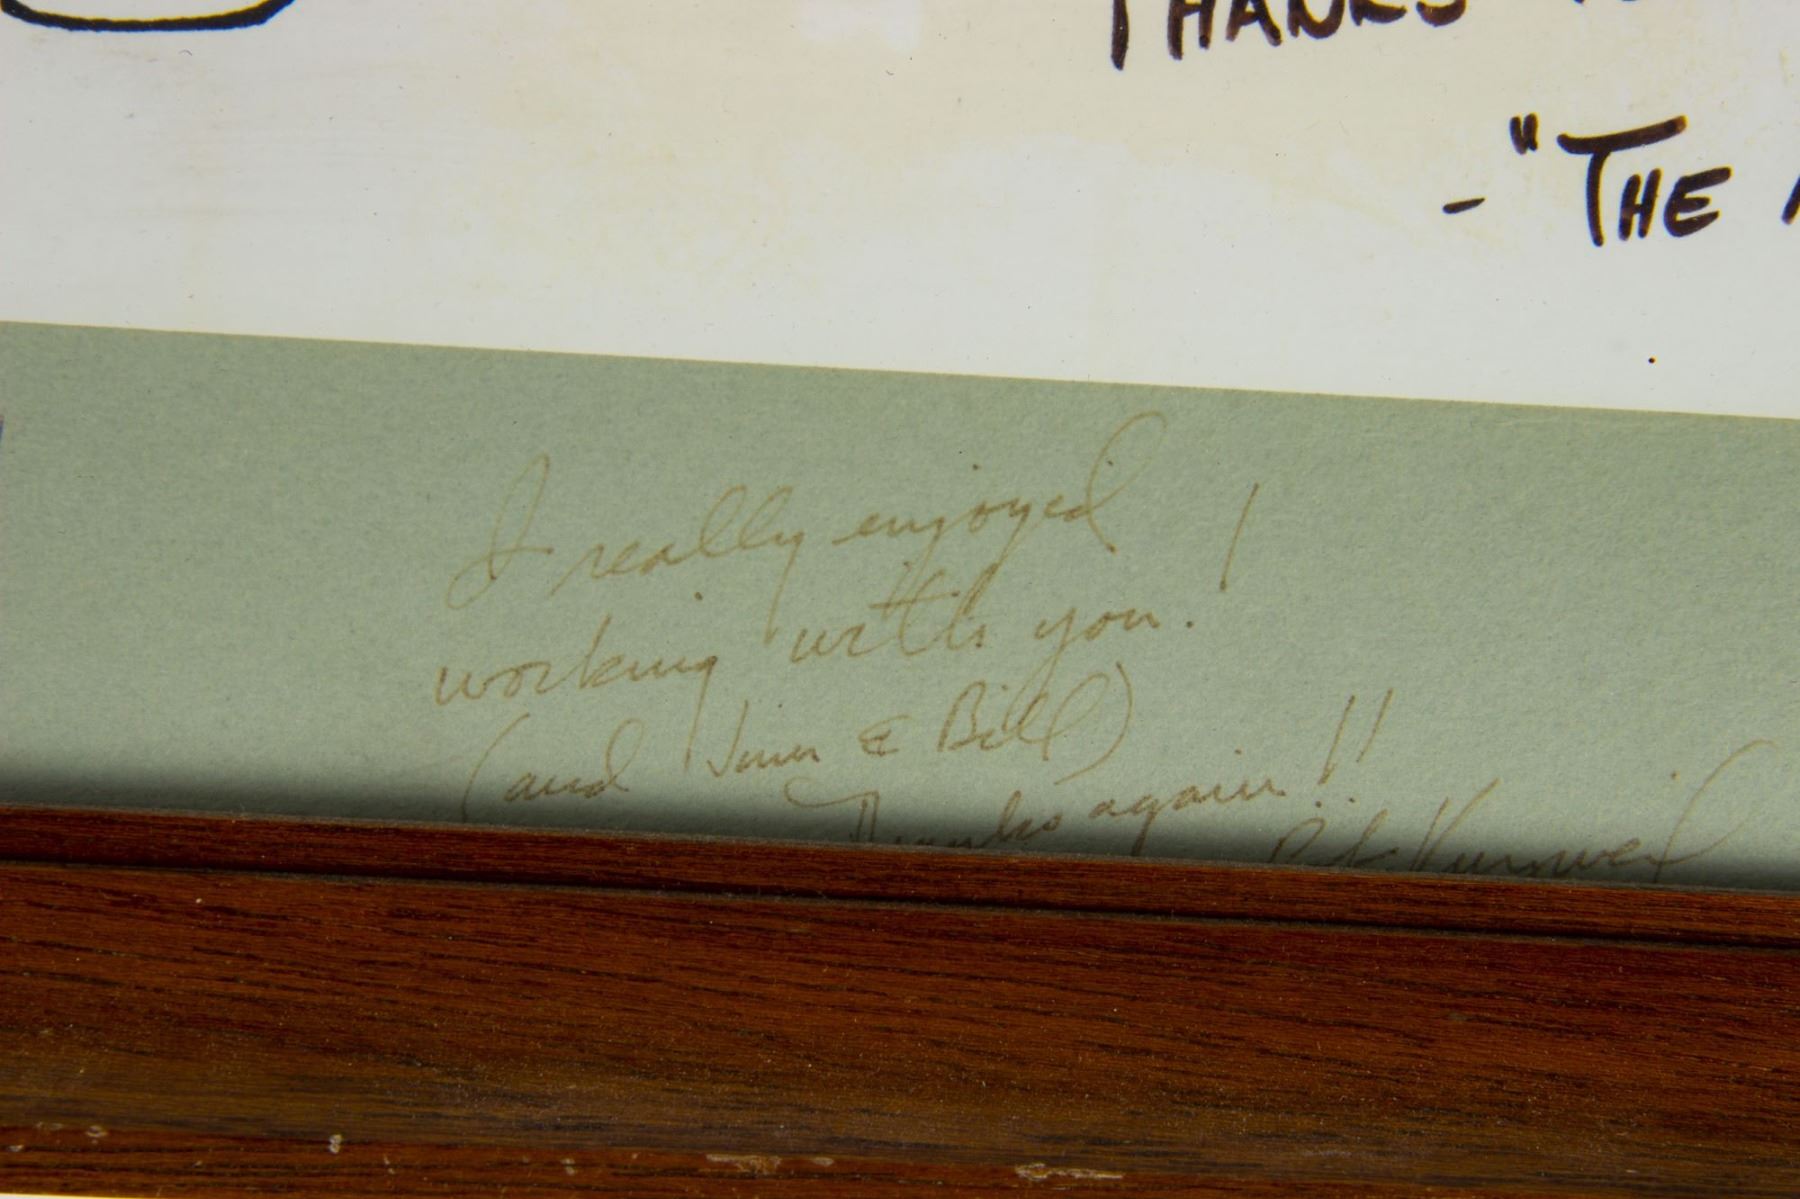 THANKS
- "THE
I really enjoyed
working with you!
(and & Bill)
Thanks again!!